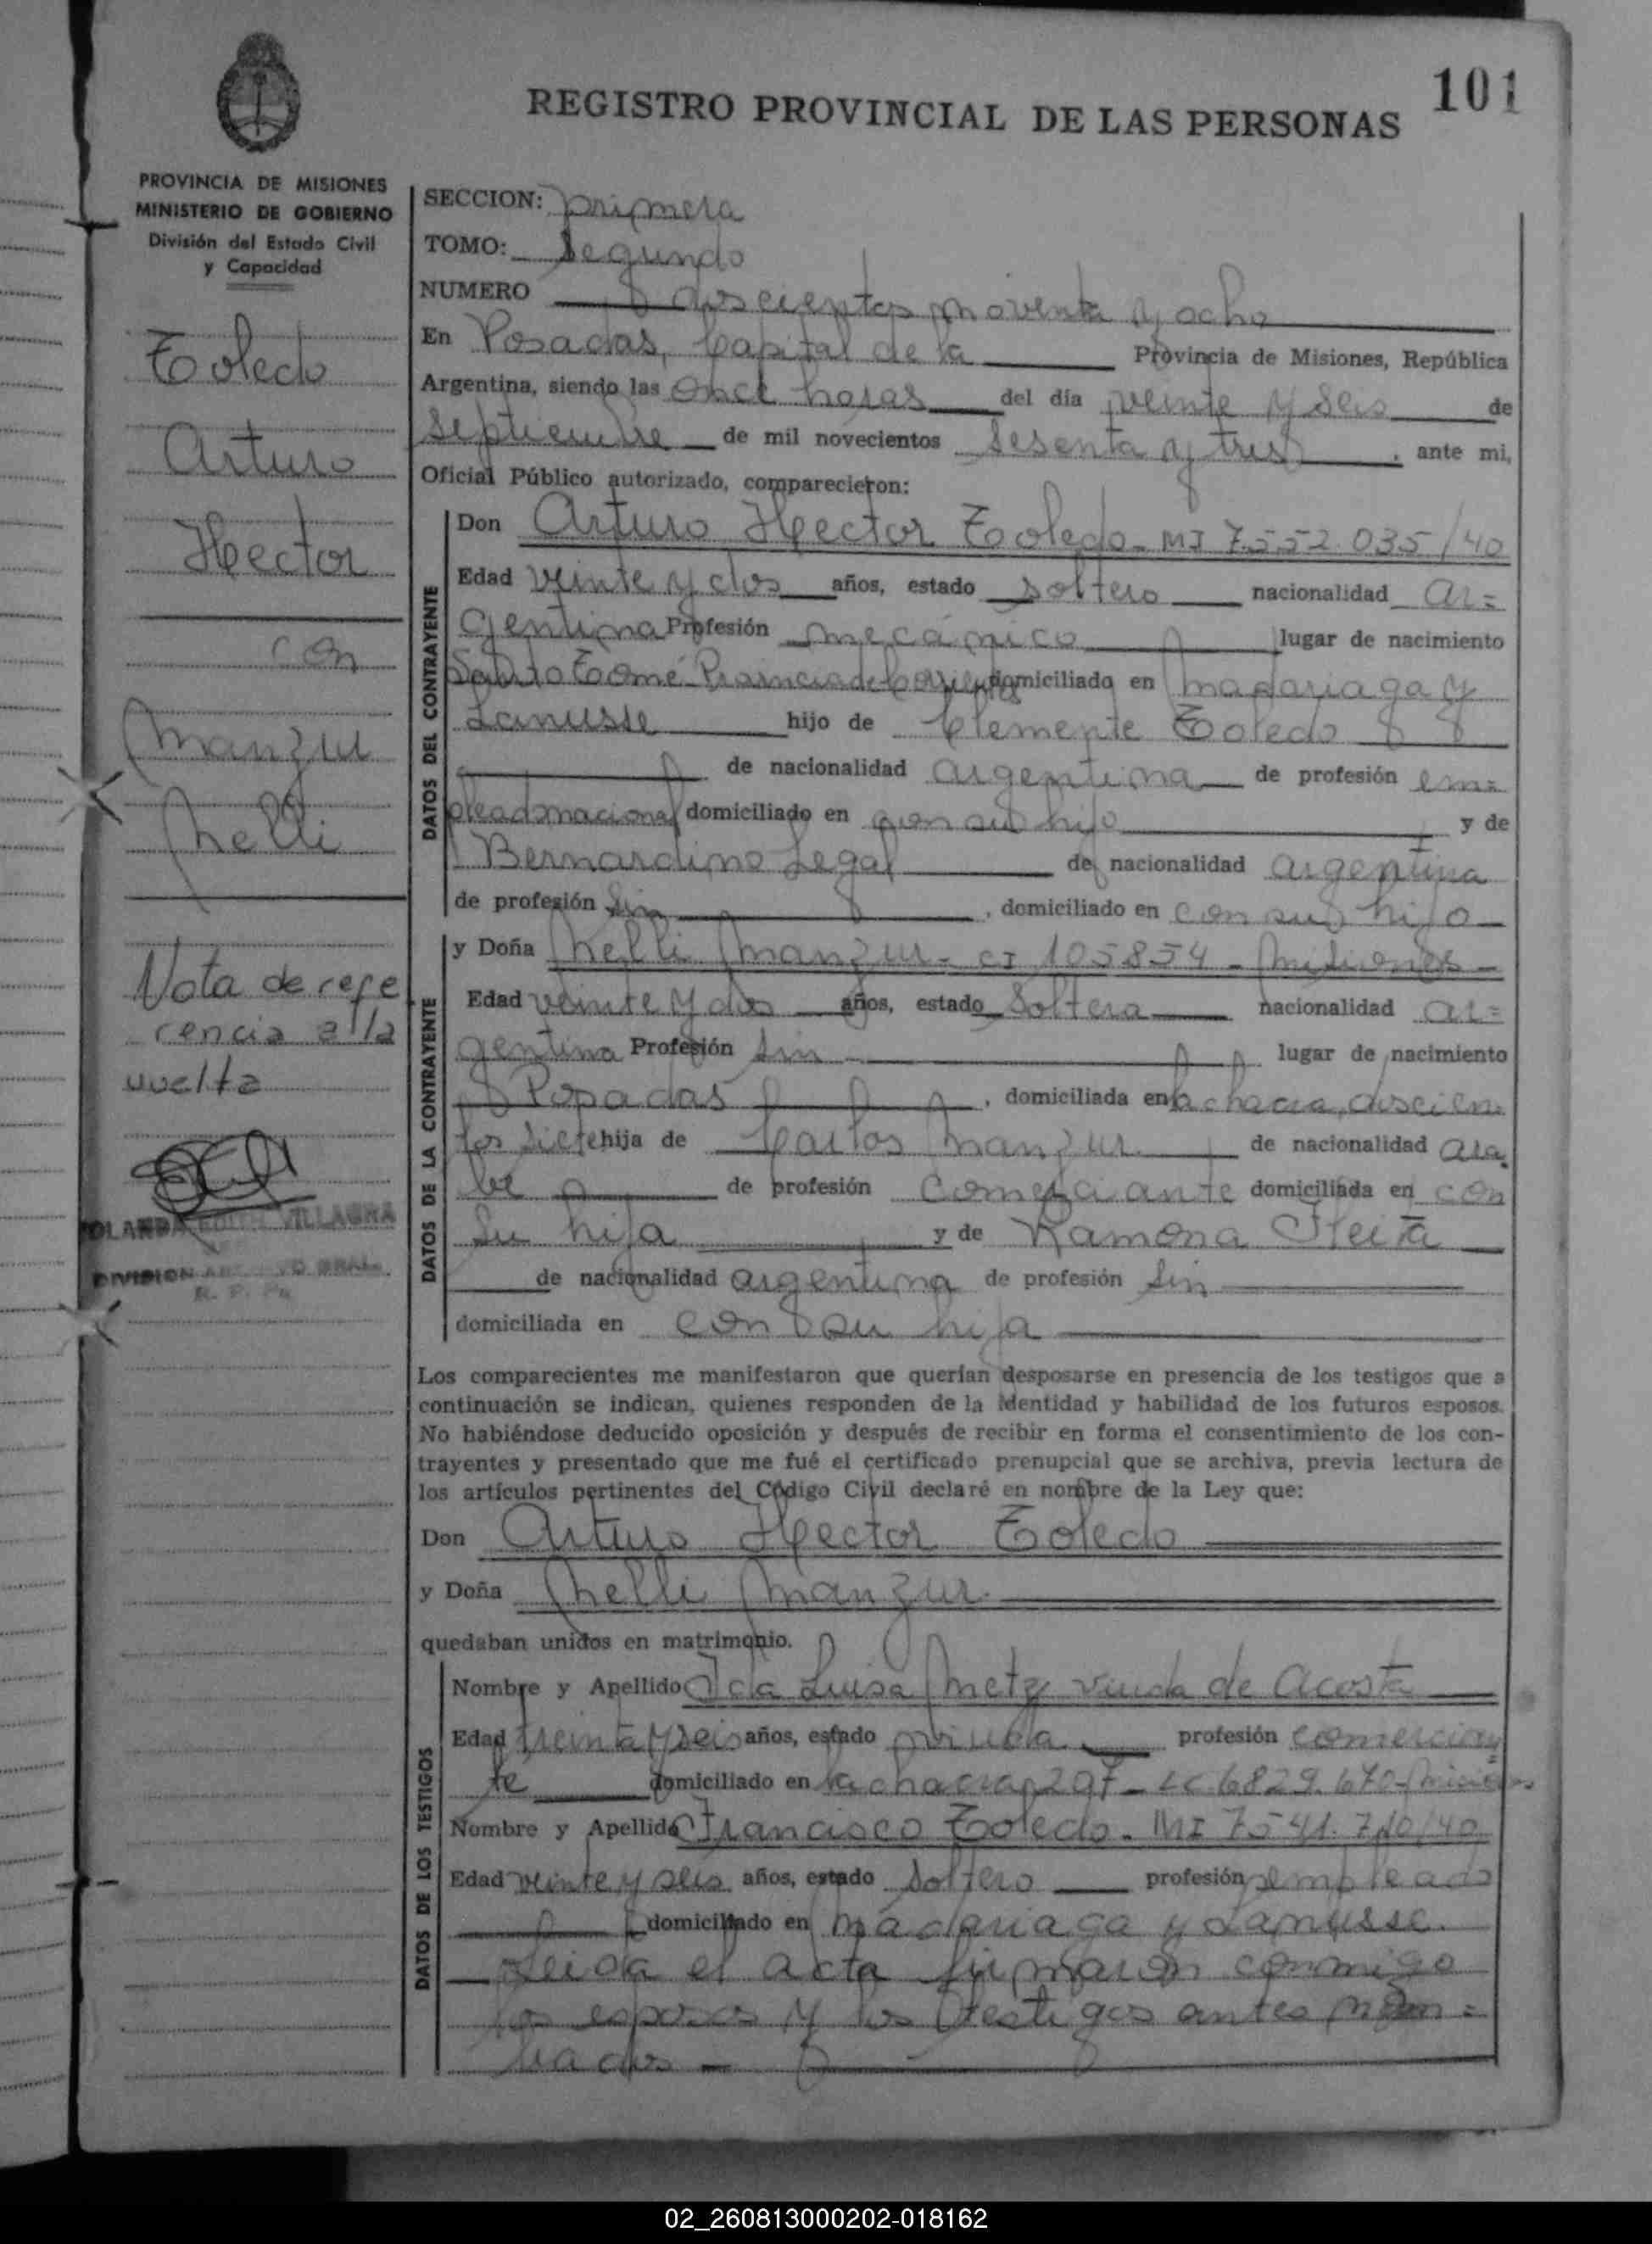 101
REGISTRO PROVINCIAL DE LAS PERSONAS
PROVINCIA DE MISIONES
MINISTERIO DE GOBIERNO
División del Estado Civil
y Capacidad
Toledo
Arturo
Hector
con
Manzur
Nelli
Nota de refe
rencia a la
vuelta
YOLANDA EDITH VILLAGRA
DIVISION ARCHIVO GRAL.
R. P. Ps
SECCION: primera
TOMO: Segundo
NUMERO doscientos noventa y ocho
En Posadas, Capital de la Provincia de Misiones, República
Argentina, siendo las once horas del día veinte y seis de
septiembre de mil novecientos sesenta y tres, ante mi,
Oficial Público autorizado, comparecieron:
DATOS DEL CONTRAYENTE
Don Arturo Hector Toledo - MI 7552.035/40
Edad veinte y dos años, estado soltero nacionalidad ar=
gentina Profesión mecánico lugar de nacimiento
Santo Tomé Provincia de Corrientes domiciliado en Madariaga y
Lanusse hijo de Clemente Toledo
de nacionalidad argentina de profesión em=
pleado nacional domiciliado en con su hijo y de
Bernardina Legal de nacionalidad argentina
de profesión Sin, domiciliado en con su hijo
DATOS DE LA CONTRAYENTE
y Doña Nelli Manzur - CI 105854 - Misiones -
Edad veinte y dos años, estado Soltera nacionalidad ar=
gentina Profesión Sin lugar de nacimiento
Posadas, domiciliada en la chacra, doscien
tos siete hija de Carlos Manzur de nacionalidad ara
be de profesión Comerciante domiciliada en con
su hija y de Ramona Fleita
de nacionalidad argentina de profesión Sin
domiciliada en con su hija
Los comparecientes me manifestaron que querían desposarse en presencia de los testigos que a
continuación se indican, quienes responden de la identidad y habilidad de los futuros esposos.
No habiéndose deducido oposición y después de recibir en forma el consentimiento de los con-
trayentes y presentado que me fué el certificado prenupcial que se archiva, previa lectura de
los artículos pertinentes del Código Civil declaré en nombre de la Ley que:
Don Arturo Hector Toledo
y Doña Nelli Manzur
quedaban unidos en matrimonio.
DATOS DE LOS TESTIGOS
Nombre y Apellido Ida Luisa Metz viuda de Acosta
Edad treinta y seis años, estado viuda profesión comercian
te domiciliado en la chacra 207 - LC 6829.670 - Misiones
Nombre y Apellido Francisco Toledo - MI 7541.710/40
Edad veinte y seis años, estado Soltero profesión empleado
domiciliado en Madariaga y Lanusse.
Leida el acta firmaron conmigo
los esposos y los testigos antes nom=
brados -
02_260813000202-018162